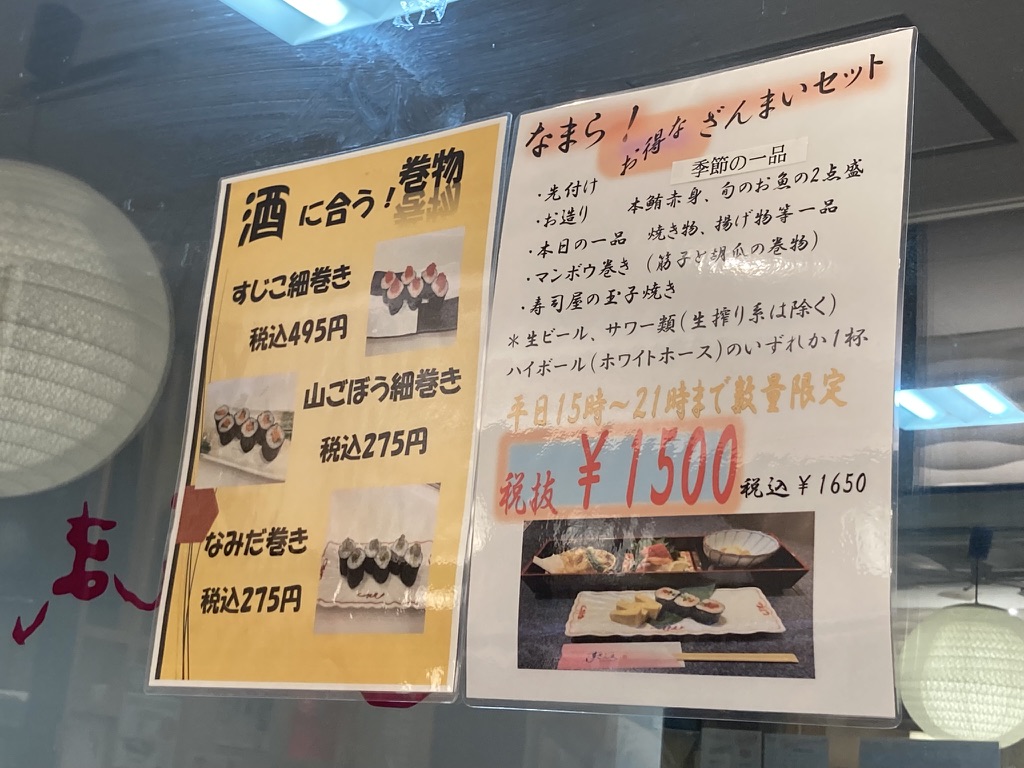 酒に合う！巻物
すじこ細巻き
税込495円
山ごぼう細巻き
税込275円
なみだ巻き
税込275円
なまら！お得なざんまいセット
・先付け　季節の一品
・お造り　本鮪赤身、旬のお魚の2点盛
・本日の一品　焼き物、揚げ物等一品
・マンボウ巻き（筋子と胡瓜の巻物）
・寿司屋の玉子焼き
＊生ビール、サワー類（生搾り系は除く）
ハイボール（ホワイトホース）のいずれか1杯
平日15時～21時まで数量限定
税抜￥1500税込￥1650